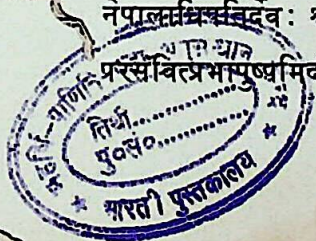 नेपालाधिपतिर्देवः
परसंवित्प्रभापुष्पमिद
महर्षि-पाणिनि
तिथी..............
पु०सं०..............
भारती पुस्तकालय